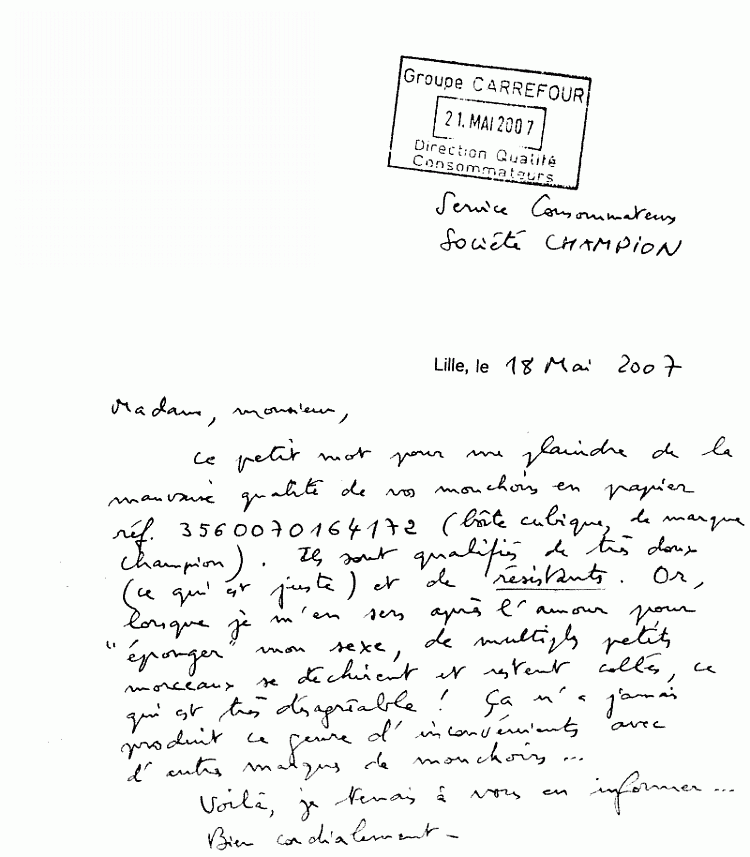 Groupe CARREFOUR
21. MAI 2007
Direction Qualité
Consommateurs
Service Consommateurs
Société CHAMPION
Lille, le 18 Mai 2007
Madame, monsieur,
Ce petit mot pour me plaindre de la
mauvaise qualité de vos mouchoirs en papier
réf. 3560070164172 (boîte cubique, de marque
champion). Ils sont qualifiés de très doux
(ce qui est juste) et de résistants. Or,
lorsque je m'en sers après l'amour pour
"éponger" mon sexe, de multiples petits
morceaux se déchirent et restent collés, ce
qui est très désagréable ! Ça n'a jamais
produit ce genre d'inconvénients avec
d'autres marques de mouchoirs...
Voilà, je tenais à vous en informer...
Bien cordialement -